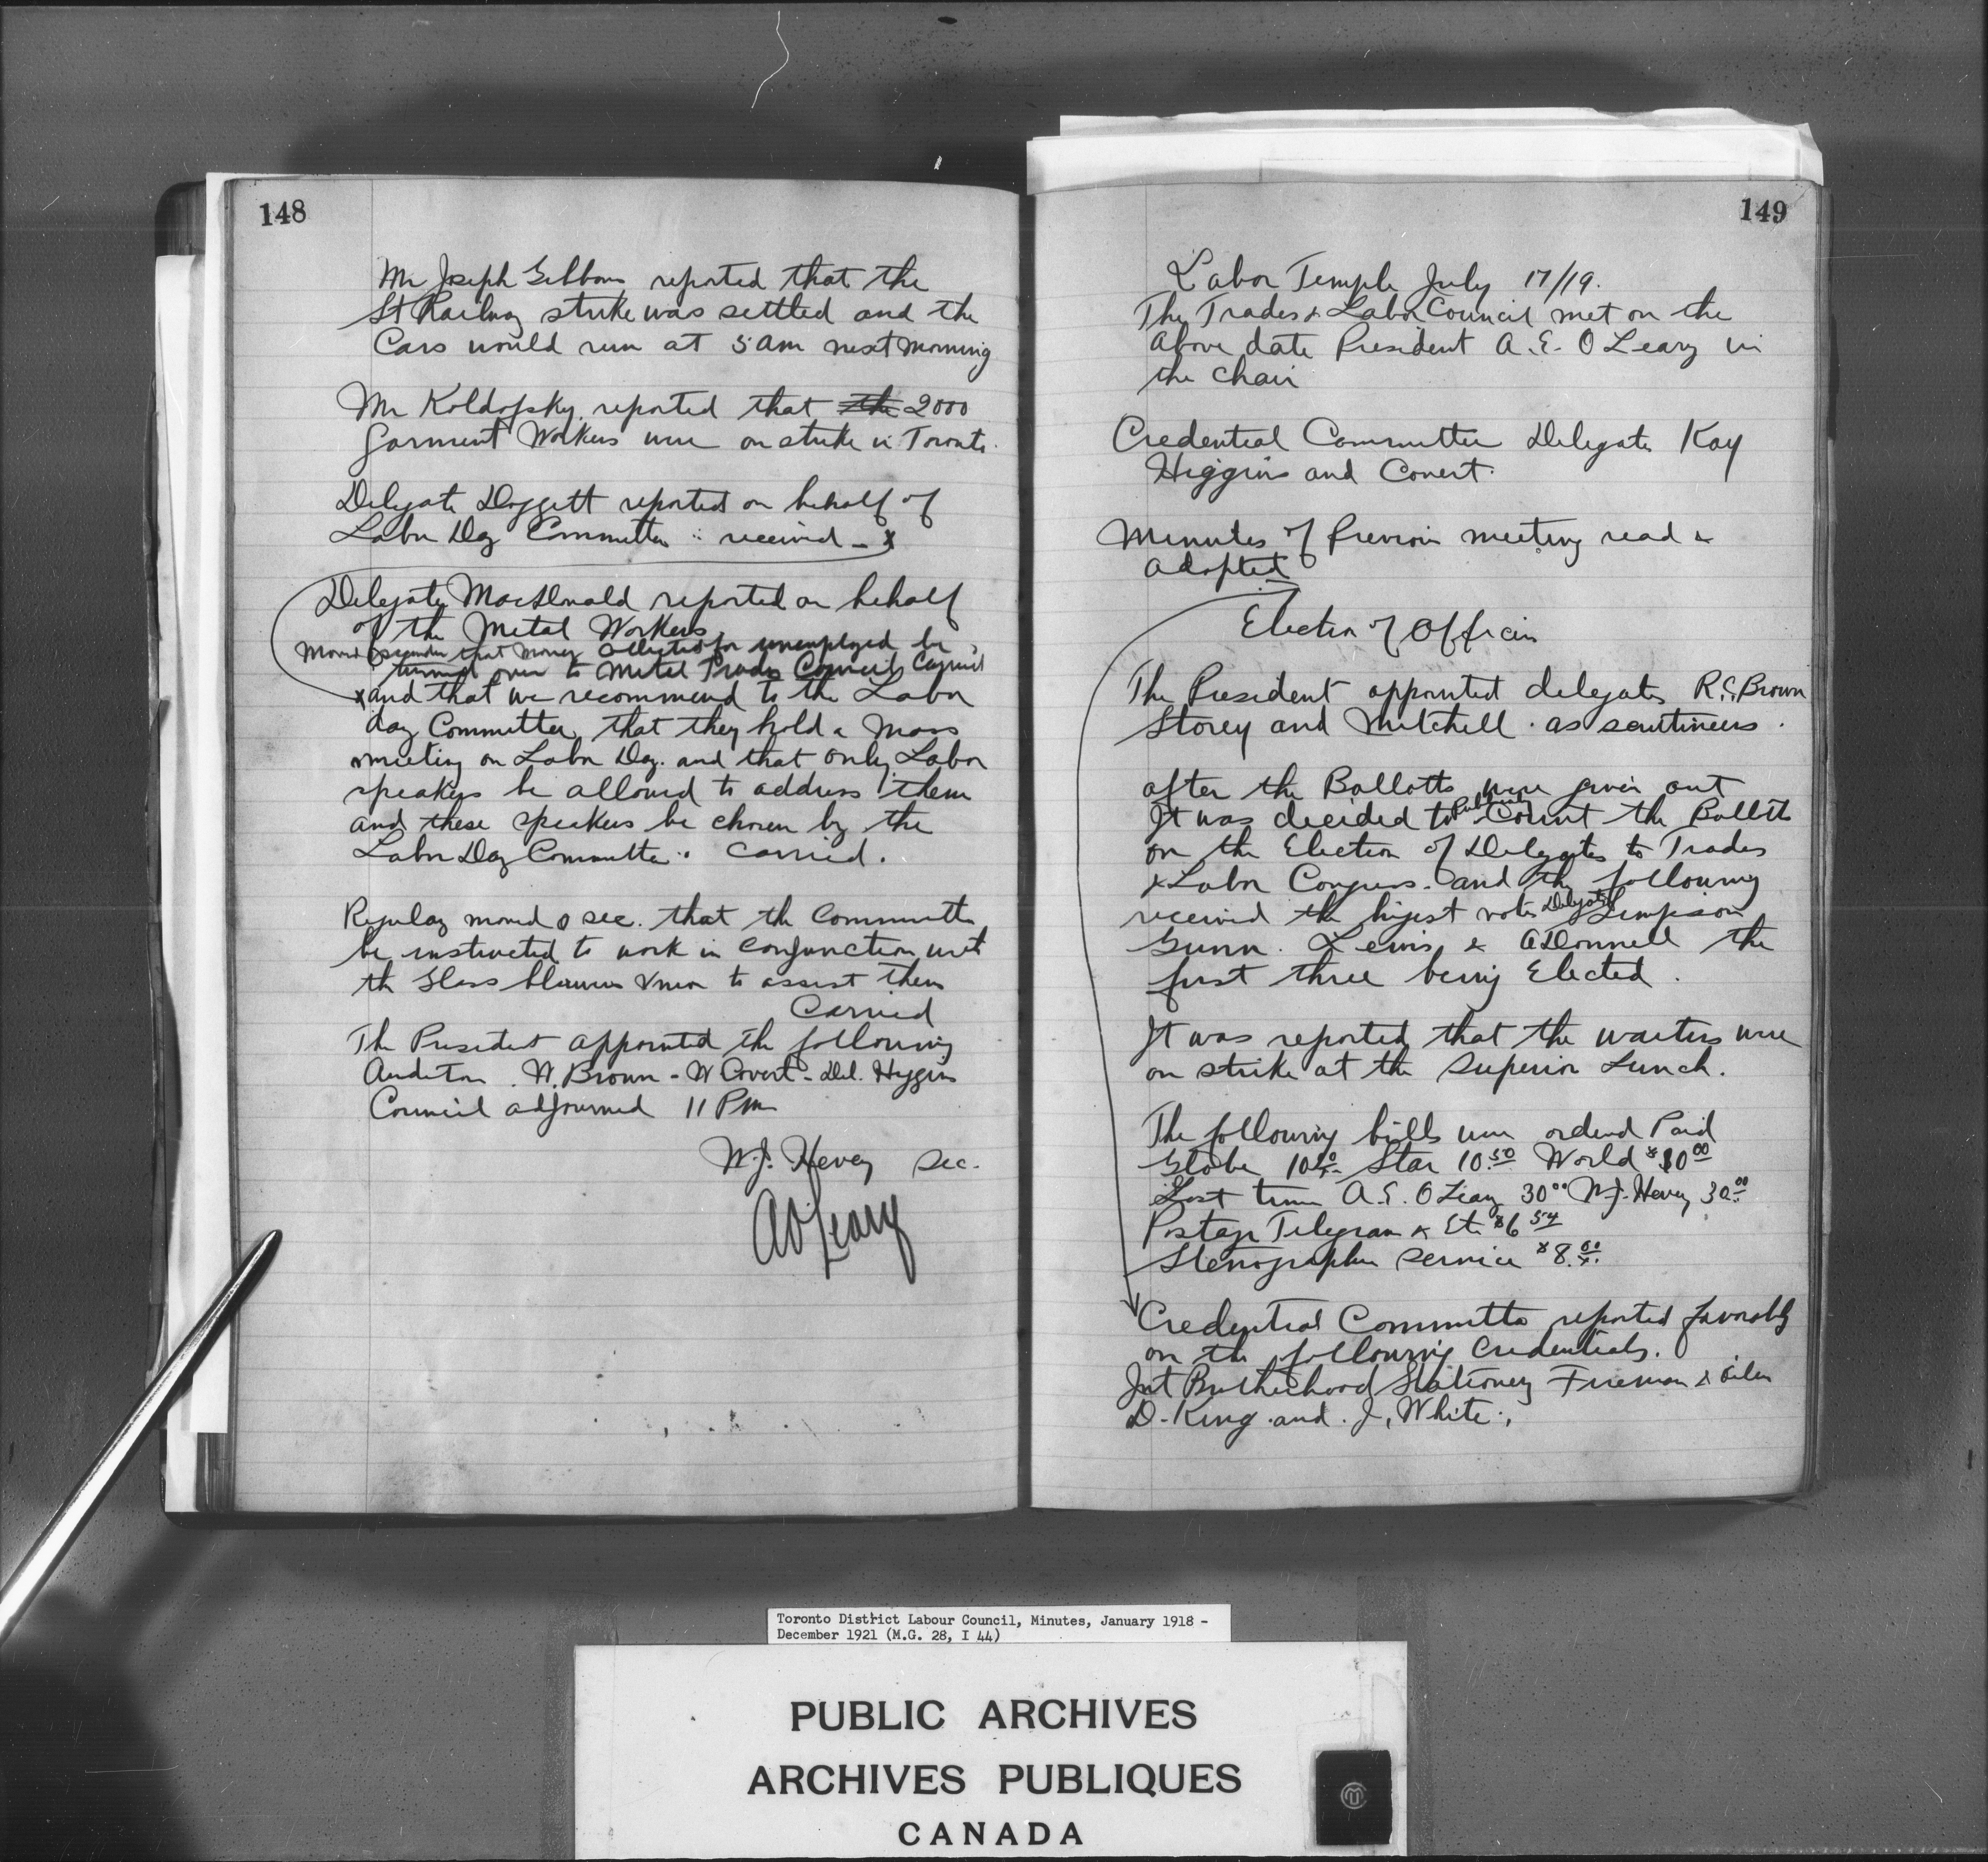 148
Mr Joseph Gibbons reported that the
St Railway strike was settled and the
Cars would run at 5 am next morning
Mr Koldofsky reported that the 2000
Garment Workers were on strike in Toronto.
Delegate Doggett reported on behalf of
Labor Day Committee received - x
Delegate MacDonald reported on behalf
of the Metal Workers
Moved & seconder that Money collected for unemployed be
turned over to Metal Trades Council Carried
x and that we recommend to the Labor
day Committee, that they hold a Mass
meeting on Labor Day. and that only Labor
speakers be allowed to address them
and these speakers be chosen by the
Labor Day Committee. Carried.
Regulary moved & sec. that the Committee
be instructed to work in conjunction with
the Glass blowers Union to assist them
Carried
The President appointed the following
Auditors. W. Brown - W Covert - Del. Higgins
Council adjourned 11 Pm
W.J. Hevey Sec.
A O'Leary
149
Labor Temple July 17/19.
The Trades & Labor Council met on the
above date President A.E. O Leary in
the chair
Credential Committee Delegate Kay
Higgins and Covert.
Minutes of Previous meeting read &
adopted
Election of Officers
The President appointed delegates R.C. Brown
Storey and Mitchell. as scutineers.
after the Ballotts were given out
It was decided to Count the Ballots
on the Election of Delegates to Trades
& Labor Congress. and the following
received the higest votes Delegates Simpson
Gunn. Lewis & ODonnell the
first three being Elected.
It was reported that the waiters were
on strike at the Superior Lunch.
The following bills were orderd Paid
Globe 10.50 Star 10.50 World $10.00
Lost time A.E. O Leary 30.00 W.J. Hevey 30.00
Postage Telegram & Etc $6.54
Stenographer Service $8.00
Credential Committe reported favorably
on the following Credentials.
Int Brotherhood Stationey Fireman & oiler
D. King. and J. White.
Toronto District Labour Council, Minutes, January 1918 -
December 1921 (M.G. 28, I 44)
PUBLIC ARCHIVES
ARCHIVES PUBLIQUES
CANADA